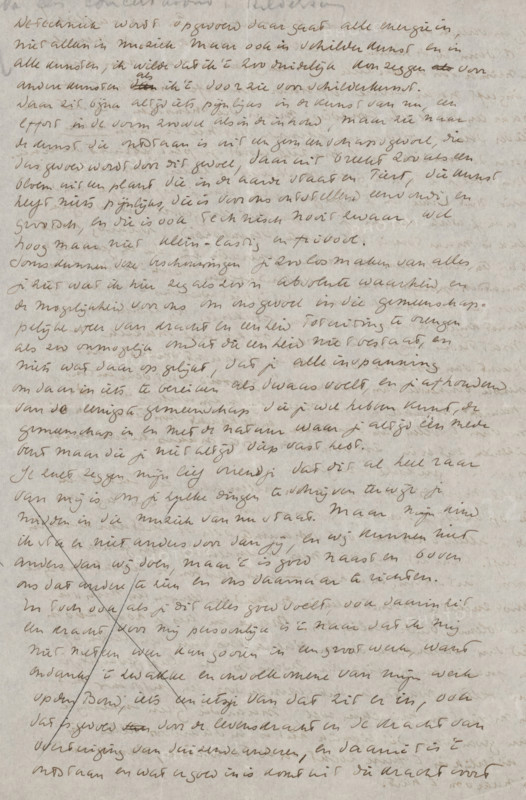 De techniek wordt opgevoerd daar gaat alle energie in,
niet alleen in muziek maar ook in schilderkunst en in
alle kunsten, ik wilde dat ik 't zoo duidelijk kon zeggen voor
andere kunsten als ik 't door zie voor schilderkunst.
Daar zit bijna altijd iets pijnlijks in de kunst van nu, een
effort in de vorm zoowel als in de inhoud, maar zie naar
de kunst die ontstaan is uit een gemeenschapsgevoel, die
gevoed wordt door dit gevoel, daar uit breekt zooals een
bloem uit een plant die in de aarde staat en tiert, die kunst
heeft niets pijnlijks, die is voor ons ontstellend eenvoudig en
grootsch, en die is ook technisch nooit zwaar, wel
hoog maar niet klein-lastig en frivool.
Soms kunnen deze beschouwingen je zoo los maken van alles,
je ziet wat ik hier zeg als zoo'n absolute waarheid, en
de mogelijkheid voor ons om ons gevoel in die gemeenschap-
pelijke sfeer van kracht en eenheid tot uiting te brengen
als zoo onmogelijk omdat die eenheid niet bestaat, en
niets wat daar op gelijkt, dat je alle inspanning
om daarin iets te bereiken als dwaas voelt en je afzondert
van de eenigste gemeenschap die je wel hebben kunt, de
gemeenschap in en met de natuur waar je altijd één mede
bent maar die je niet altijd diep vast hebt.
Je zult zeggen mijn lief vriendje dat dit al heel raar
van mij is om je zulke dingen te schrijven terwijl je
midden in die muziek van nu staat. Maar mijn kind
ik sta er niet anders voor dan jij, en wij kunnen niet
anders dan wij doen, maar 't is goed naast en boven
ons dat andere te zien en ons daarnaar te richten.
En toch ook als je dit alles goed voelt, ook daarin zit
een kracht, voor mij persoonlijk is 't naar dat ik mij
niet meer kan gooien in een groot werk, want
ondanks 't zwakke en onvolkomene van mijn werk
op den Bond, iets een ietsje van dat zit er in, ook
dat is gevoed door de levenskracht en de kracht van
overtuiging van duizende anderen, en daaruit is 't
ontstaan en wat er goed in is komt uit die kracht voort